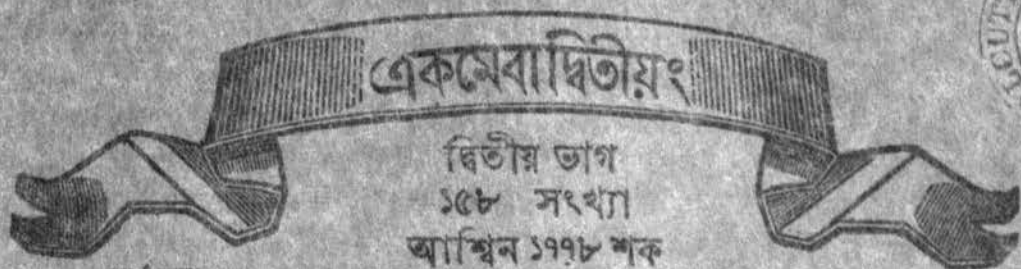 একমেবাদ্বিতীয়ং
দ্বিতীয় ভাগ
১৫৮ সংখ্যা
আশ্বিন ১৭৭৮ শক